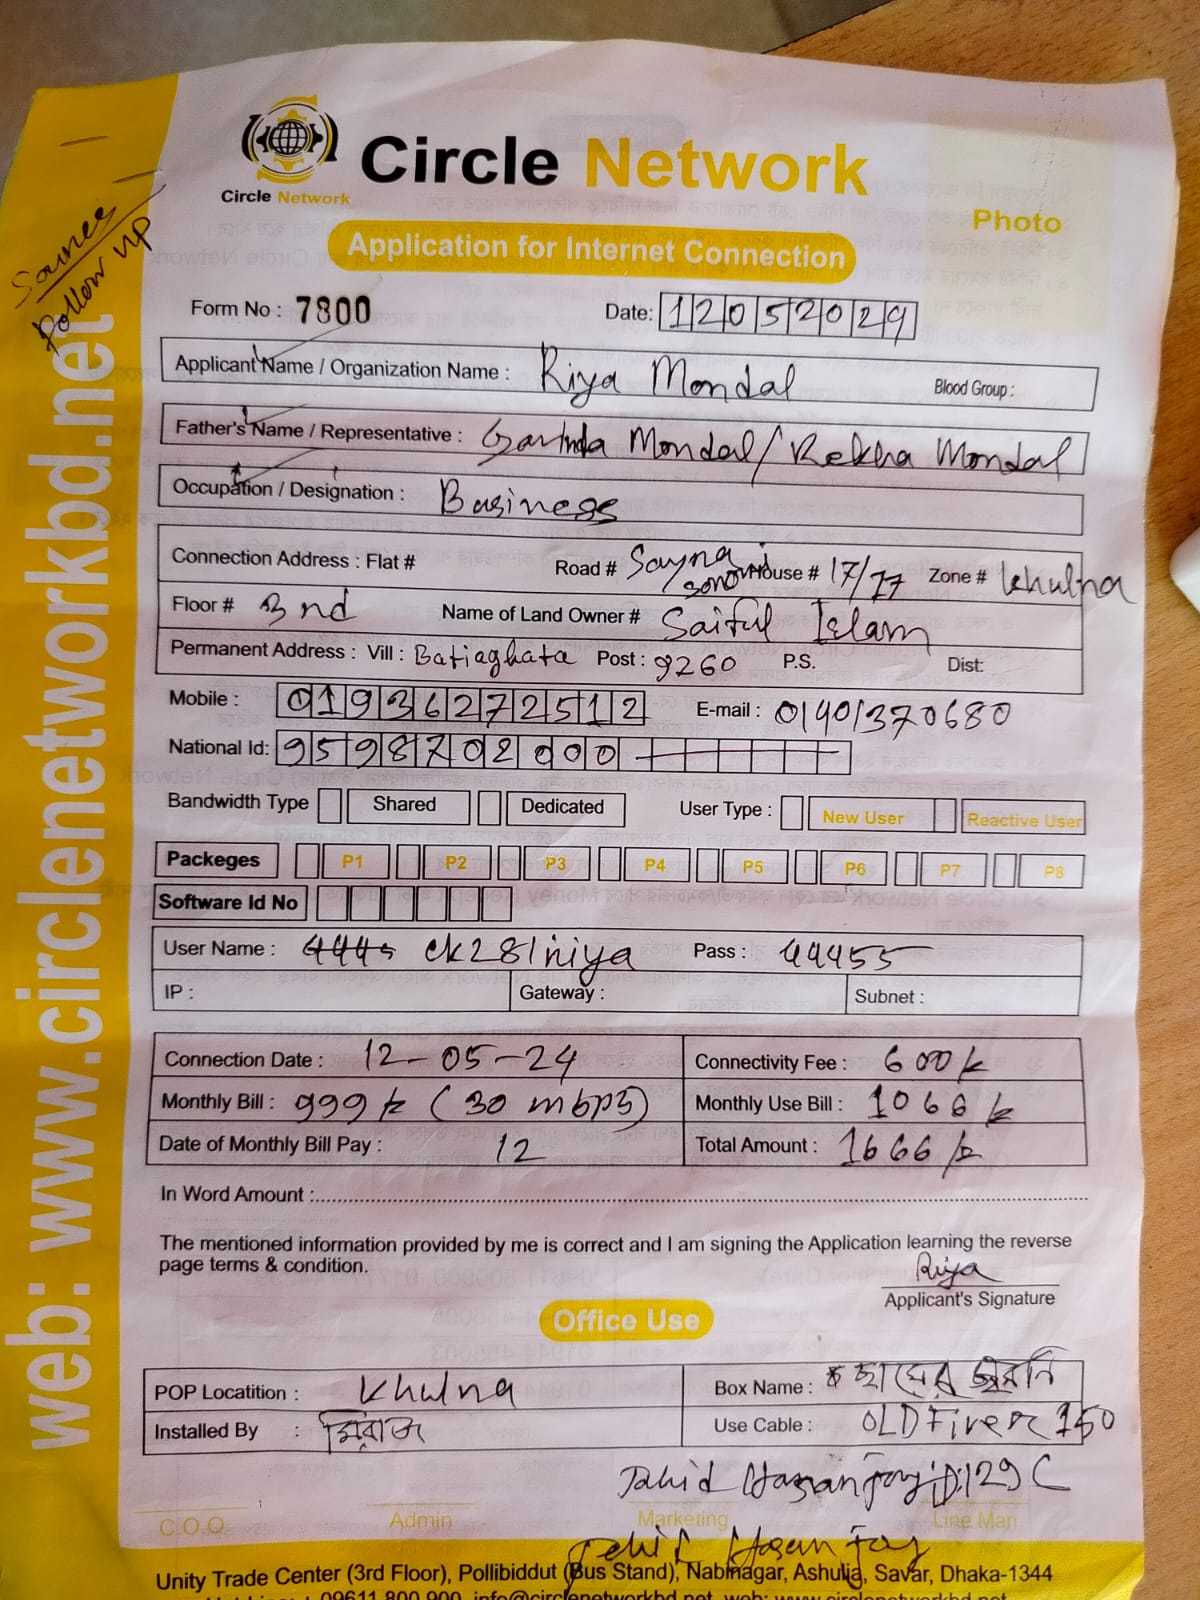 Circle Network
Circle Network
Photo
Application for Internet Connection
Follow up
Form No : 7800
Date: 12052024
Applicant Name / Organization Name : Riya Mondal Blood Group :
Father's Name / Representative : Mondal / Rekha Mondal
Occupation / Designation : Business
Connection Address : Flat # Road # House # 17/77 Zone # Khulna
Floor # 3nd Name of Land Owner # Saiful Islam
Permanent Address : Vill : Batiaghata Post : 9260 P.S. Dist:
Mobile : 01936272512 E-mail : 01401370680
National Id: 9598702000
Bandwidth Type Shared Dedicated User Type : New User Reactive User
Packeges P1 P2 P3 P4 P5 P6 P7 P8
Software Id No
User Name : ck281riya Pass : 44455
IP : Gateway : Subnet :
Connection Date : 12-05-24 Connectivity Fee : 600 k
Monthly Bill : 999 k (30 mbps) Monthly Use Bill : 1066 k
Date of Monthly Bill Pay : 12 Total Amount : 1666 k
In Word Amount :
The mentioned information provided by me is correct and I am signing the Application learning the reverse
page terms & condition.
Riya
Applicant's Signature
Office Use
POP Locatition : Khulna Box Name :
Installed By : মিরাজ Use Cable : OLD Fiver 150
Jahid Hasan Joy ID:129 C
C.O.O Admin Marketing Line Man
Jahid Hasan Joy
Unity Trade Center (3rd Floor), Pollibiddut (Bus Stand), Nabinagar, Ashulia, Savar, Dhaka-1344
09611 800 900, info@circlenetworkbd.net, web: www.circlenetworkbd.net
web: www.circlenetworkbd.net